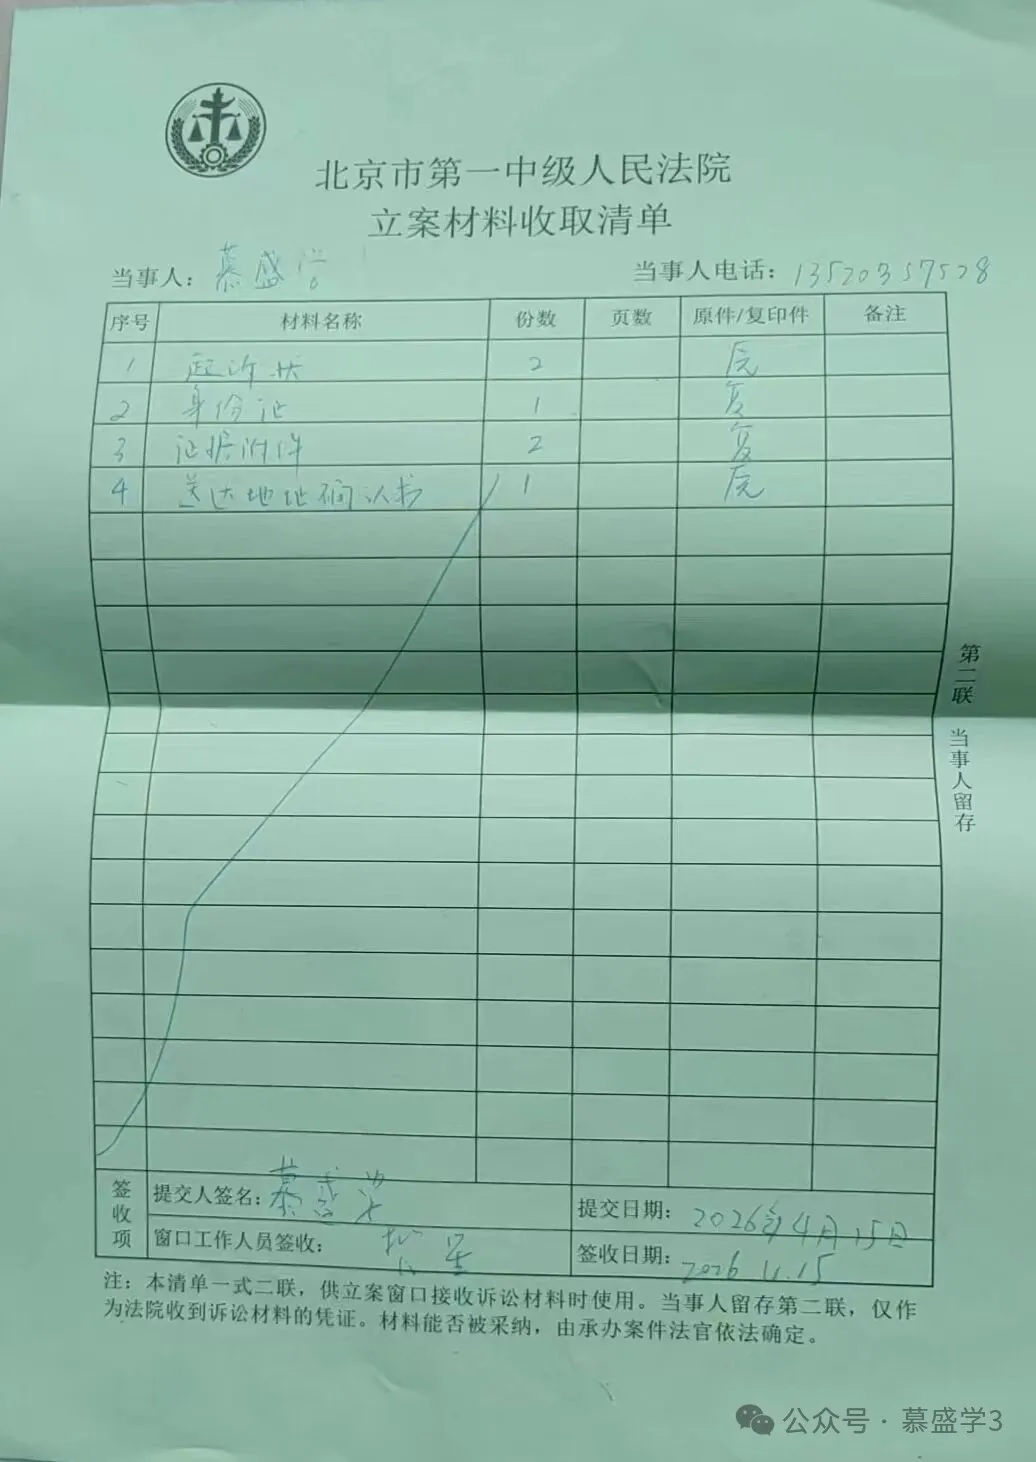 北京市第一中级人民法院
立案材料收取清单
当事人：慕盛学 当事人电话：13520357528
序号 材料名称 份数 页数 原件/复印件 备注
1 起诉状 2 原
2 身份证 1 复
3 证据附件 2 复
4 送达地址确认书 1 原
第二联 当事人留存
签收项
提交人签名：慕盛学 提交日期：2026年4月15日
窗口工作人员签收： 签收日期：2026.4.15
注：本清单一式二联，供立案窗口接收诉讼材料时使用。当事人留存第二联，仅作
为法院收到诉讼材料的凭证。材料能否被采纳，由承办案件法官依法确定。
公众号·慕盛学3